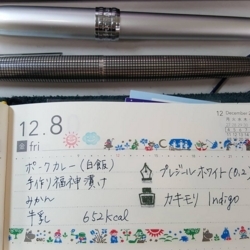 12.8
金 fri
12 December
ポークカレー(白飯)
手作り福神漬け
みかん
牛乳 652kcal
プレジール ホワイト(0.2)
カキモリ Indigo